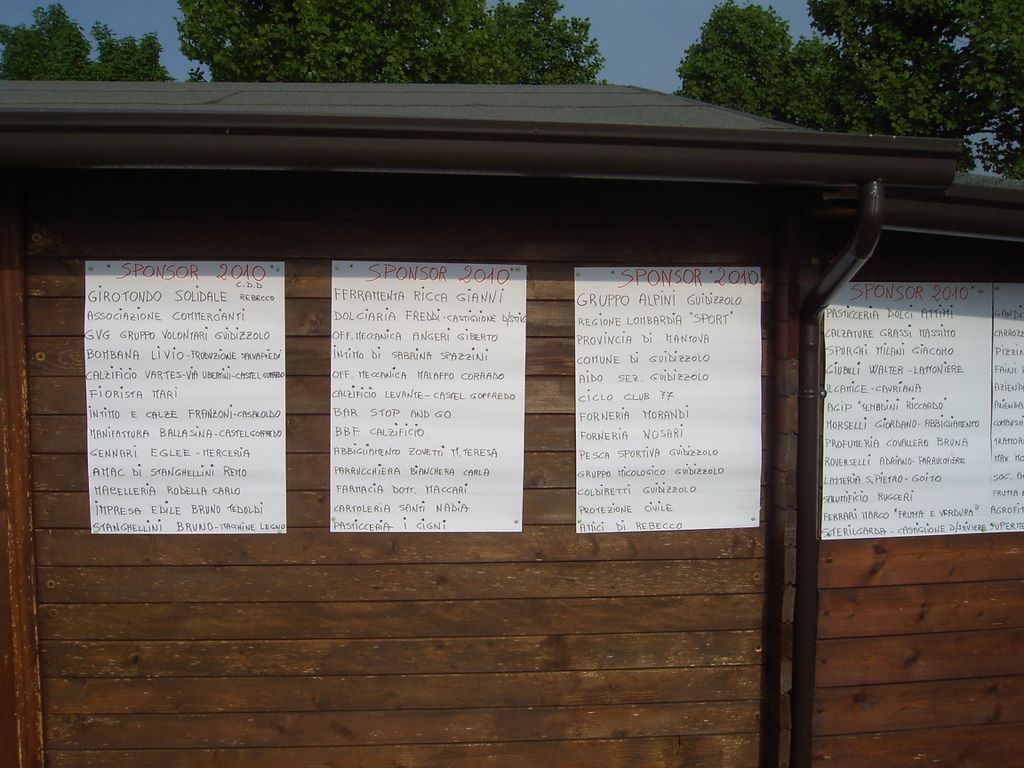 SPONSOR 2010
C.D.D
GIROTONDO SOLIDALE REBECCO
ASSOCIAZIONE COMMERCIANTI
GVG GRUPPO VOLONTARI GUIDIZZOLO
BOMBANA LIVIO-PRODUZIONE SALVAPIEDI
CALZIFICIO VARTES-VIA UBERTINI-CASTEL GOFFREDO
FIORISTA MARI
INTIMO E CALZE FRANZONI-CASALOLDO
MANIFATTURA BALLASINA-CASTEL GOFFREDO
GENNARI EGLEE-MERCERIA
AMAC DI STANGHELLINI REMO
MACELLERIA RODELLA CARLO
IMPRESA EDILE BRUNO TEDOLDI
STANGHELLINI BRUNO-MACCHINE LEGNO
SPONSOR 2010
FERRAMENTA RICCA GIANNI
DOLCIARIA FREDDI-CASTIGLIONE D/STIV.
OFF.MECCANICA ANGERI GIBERTO
INTIMO DI SABRINA SPAZZINI
OFF. MECCANICA MALAFFO CORRADO
CALZIFICIO LEVANTE-CASTEL GOFFREDO
BAR STOP AND GO
BBF CALZIFICIO
ABBIGLIAMENTO ZOVETTI M.TERESA
PARRUCCHIERA BIANCHERA CARLA
FARMACIA DOTT. MACCARI
CARTOLERIA SANTI NADIA
PASTICCERIA I CIGNI
SPONSOR 2010
GRUPPO ALPINI GUIDIZZOLO
REGIONE LOMBARDIA "SPORT"
PROVINCIA DI MANTOVA
COMUNE DI GUIDIZZOLO
AIDO SEZ. GUIDIZZOLO
CICLO CLUB 77
FORNERIA MORANDI
FORNERIA NOSARI
PESCA SPORTIVA GUIDIZZOLO
GRUPPO MICOLOGICO GUIDIZZOLO
COLDIRETTI GUIDIZZOLO
PROTEZIONE CIVILE
AMICI DI REBECCO
SPONSOR 2010
PASTICCERIA DOLCI ATTIMI
CALZATURE GRASSI MASSIMO
SPURGHI MILANI GIACOMO
GIUBELLI WALTER-LATTONIERE
ULCATICE-CAVRIANA
AGIP "TENEDINI RICCARDO"
MORSELLI GIORDANO-ABBIGLIAMENTO
PROFUMERIA COVALLERO BRUNA
ROVERSELLI ADRIANO-PARRUCCHIERE
LATTERIA S.PIETRO-GOITO
SALUMIFICIO RUGGERI
FERRARI MARCO "FRUTTA E VERDURA"
STERILGARDA-CASTIGLIONE D/STIVIERE